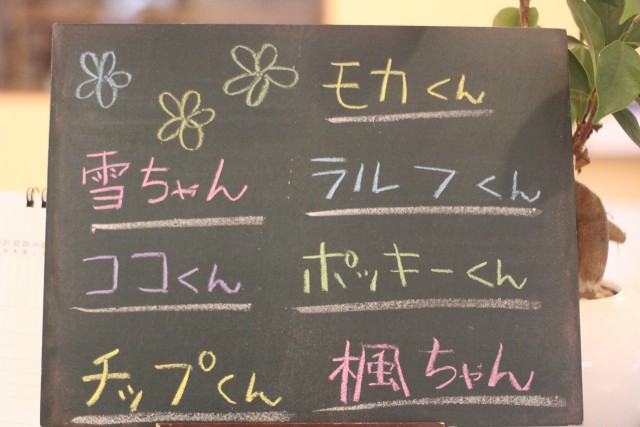 モカくん
雪ちゃん
ラルフくん
ココくん
ポッキーくん
チップくん
楓ちゃん